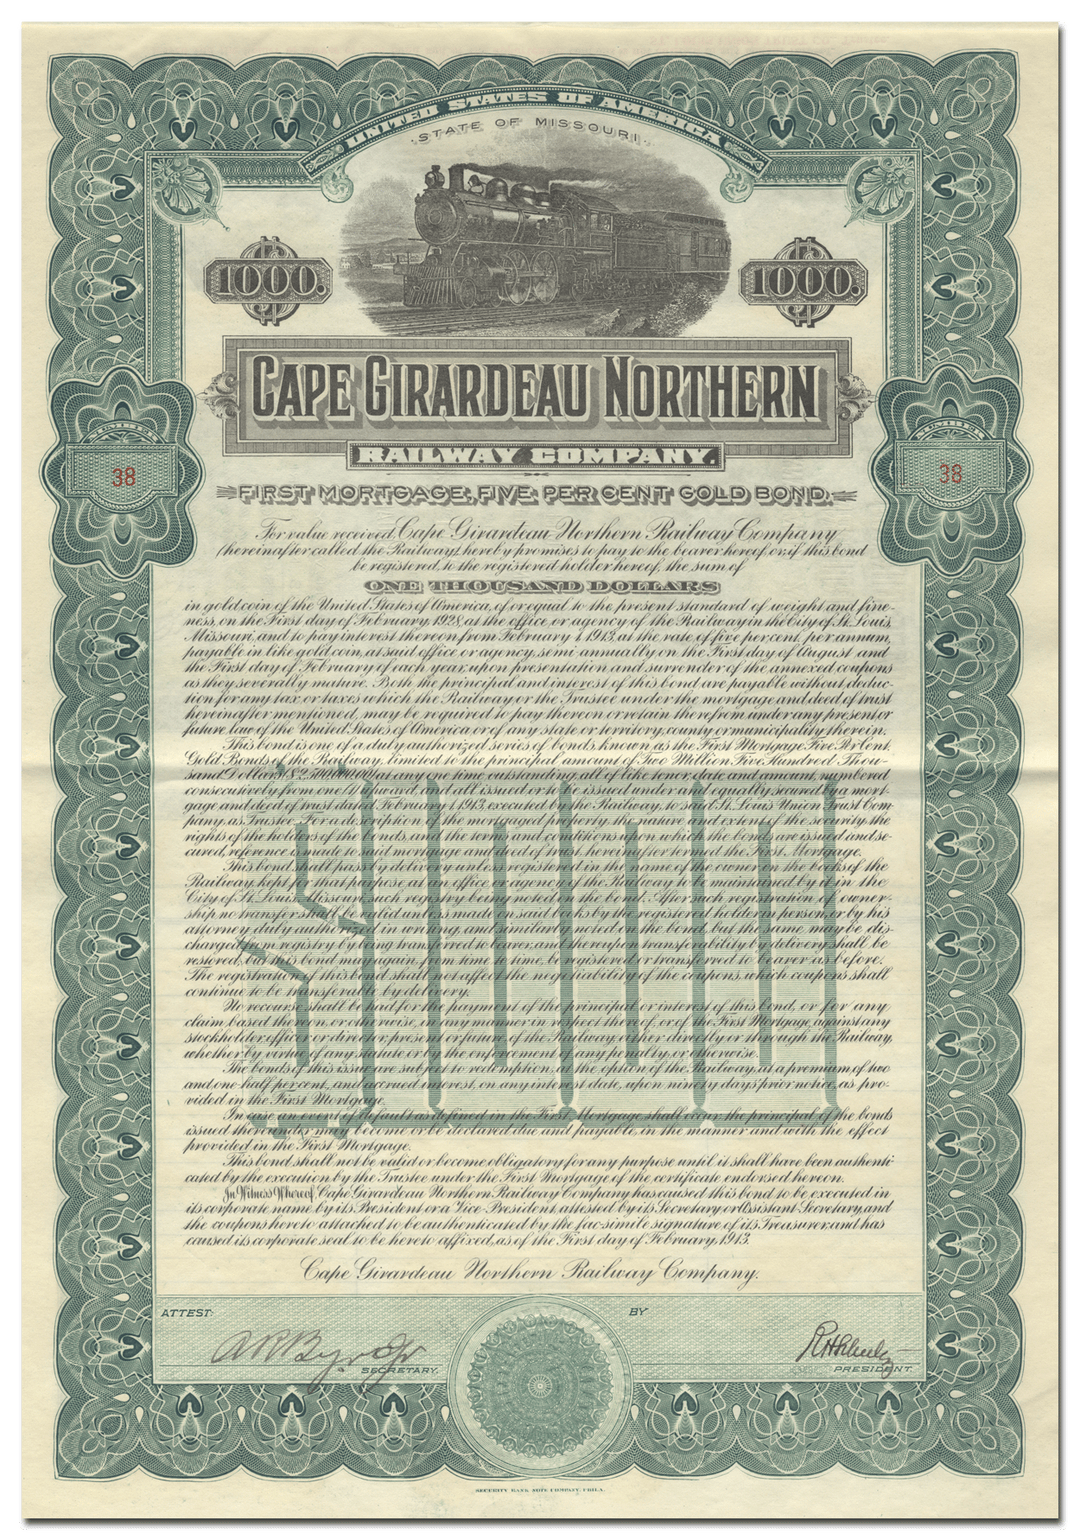 UNITED STATES OF AMERICA
STATE OF MISSOURI.
1000. 1000.
CAPE GIRARDEAU NORTHERN
RAILWAY COMPANY.
NUMBER NUMBER
38 38
FIRST MORTGAGE, FIVE PER CENT GOLD BOND.
For value received, Cape Girardeau Northern Railway Company
(hereinafter called the Railway), hereby promises to pay to the bearer hereof, or, if this bond
be registered, to the registered holder hereof, the sum of
ONE THOUSAND DOLLARS
in gold coin of the United States of America, of or equal to the present standard of weight and fine-
ness, on the First day of February, 1928, at the office or agency of the Railway in the City of St. Louis,
Missouri, and to pay interest thereon from February 1, 1913, at the rate of five per cent. per annum,
payable in like gold coin, at said office or agency, semi annually on the First day of August and
the First day of February of each year, upon presentation and surrender of the annexed coupons
as they severally mature. Both the principal and interest of this bond are payable without deduc-
tion for any tax or taxes which the Railway or the Trustee under the mortgage and deed of trust
hereinafter mentioned, may be required to pay thereon or retain therefrom under any present or
future law of the United States of America or of any state or territory, county or municipality therein.
This bond is one of a duly authorized series of bonds, known as the First Mortgage Five Per Cent.
Gold Bonds of the Railway, limited to the principal amount of Two Million Five Hundred Thou-
sand Dollars ($2,500,000.00) at any one time outstanding, all of like tenor, date and amount, numbered
consecutively from one (1) upward, and all issued or to be issued under and equally secured by a mort-
gage and deed of trust dated February 1, 1913, executed by the Railway, to said St. Louis Union Trust Com-
pany, as Trustee. For a description of the mortgaged property, the nature and extent of the security, the
rights of the holders of the bonds, and the terms and conditions upon which the bonds are issued and se-
cured, reference is made to said mortgage and deed of trust, hereinafter termed the First Mortgage.
This bond shall pass by delivery unless registered in the name of the owner on the books of the
Railway, kept for that purpose at an office or agency of the Railway to be maintained by it in the
City of St. Louis, Missouri, such registry being noted on the bond. After such registration of owner-
ship no transfer shall be valid unless made on said books by the registered holder in person, or by his
attorney duly authorized in writing, and similarly noted on the bond, but the same may be dis-
charged from registry by being transferred to bearer, and thereupon transferability by delivery shall be
restored, but this bond may again, from time to time, be registered or transferred to bearer as before.
The registration of this bond shall not affect the negotiability of the coupons, which coupons shall
continue to be transferable by delivery.
No recourse shall be had for the payment of the principal or interest of this bond, or for any
claim based thereon or otherwise, in any manner in respect thereof, or of the First Mortgage, against any
stockholder, officer or director, present or future, of the Railway, either directly or through the Railway,
whether by virtue of any statute or by the enforcement of any penalty, or otherwise.
The bonds of this issue are subject to redemption, at the option of the Railway, at a premium of two
and one-half per cent., and accrued interest, on any interest date, upon ninety days' prior notice, as pro-
vided in the First Mortgage.
In case an event of default as defined in the First Mortgage shall occur, the principal of the bonds
issued thereunder may become or be declared due and payable, in the manner and with the effect
provided in the First Mortgage.
This bond shall not be valid or become obligatory for any purpose until it shall have been authenti-
cated by the execution by the Trustee under the First Mortgage of the certificate endorsed hereon.
In Witness Whereof, Cape Girardeau Northern Railway Company has caused this bond to be executed in
its corporate name by its President or a Vice-President, attested by its Secretary or Assistant Secretary, and
the coupons hereto attached to be authenticated by the fac-simile signature of its Treasurer, and has
caused its corporate seal to be hereto affixed, as of the First day of February, 1913.
Cape Girardeau Northern Railway Company.
ATTEST: BY
SECRETARY. PRESIDENT.
SECURITY BANK NOTE COMPANY, PHILA.